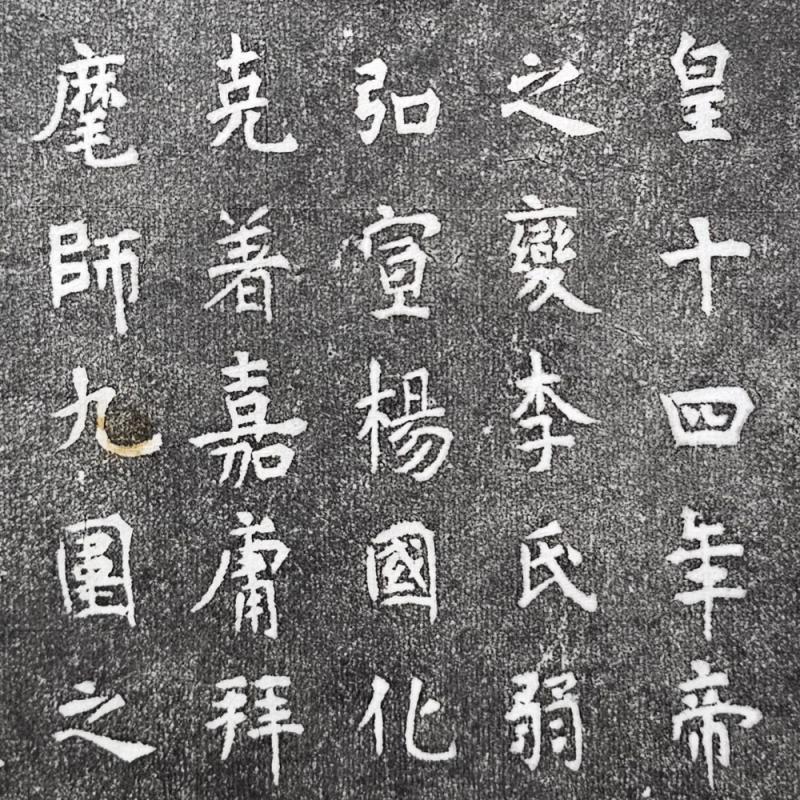 皇十四年帝
之變李氏弱
弘宣楊國化
克著嘉庸拜
麾師九圍之